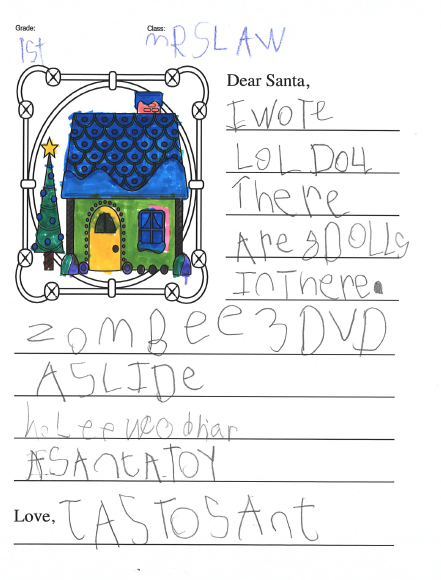 Grade: Class:
1st mRSLAW
Dear Santa,
I wote
LOL DOLL
There
Are 8 DOLLs
In There.
zomBee 3 DVD
A SLIDe
A SAntA TOY
Love, TASTOSAnt